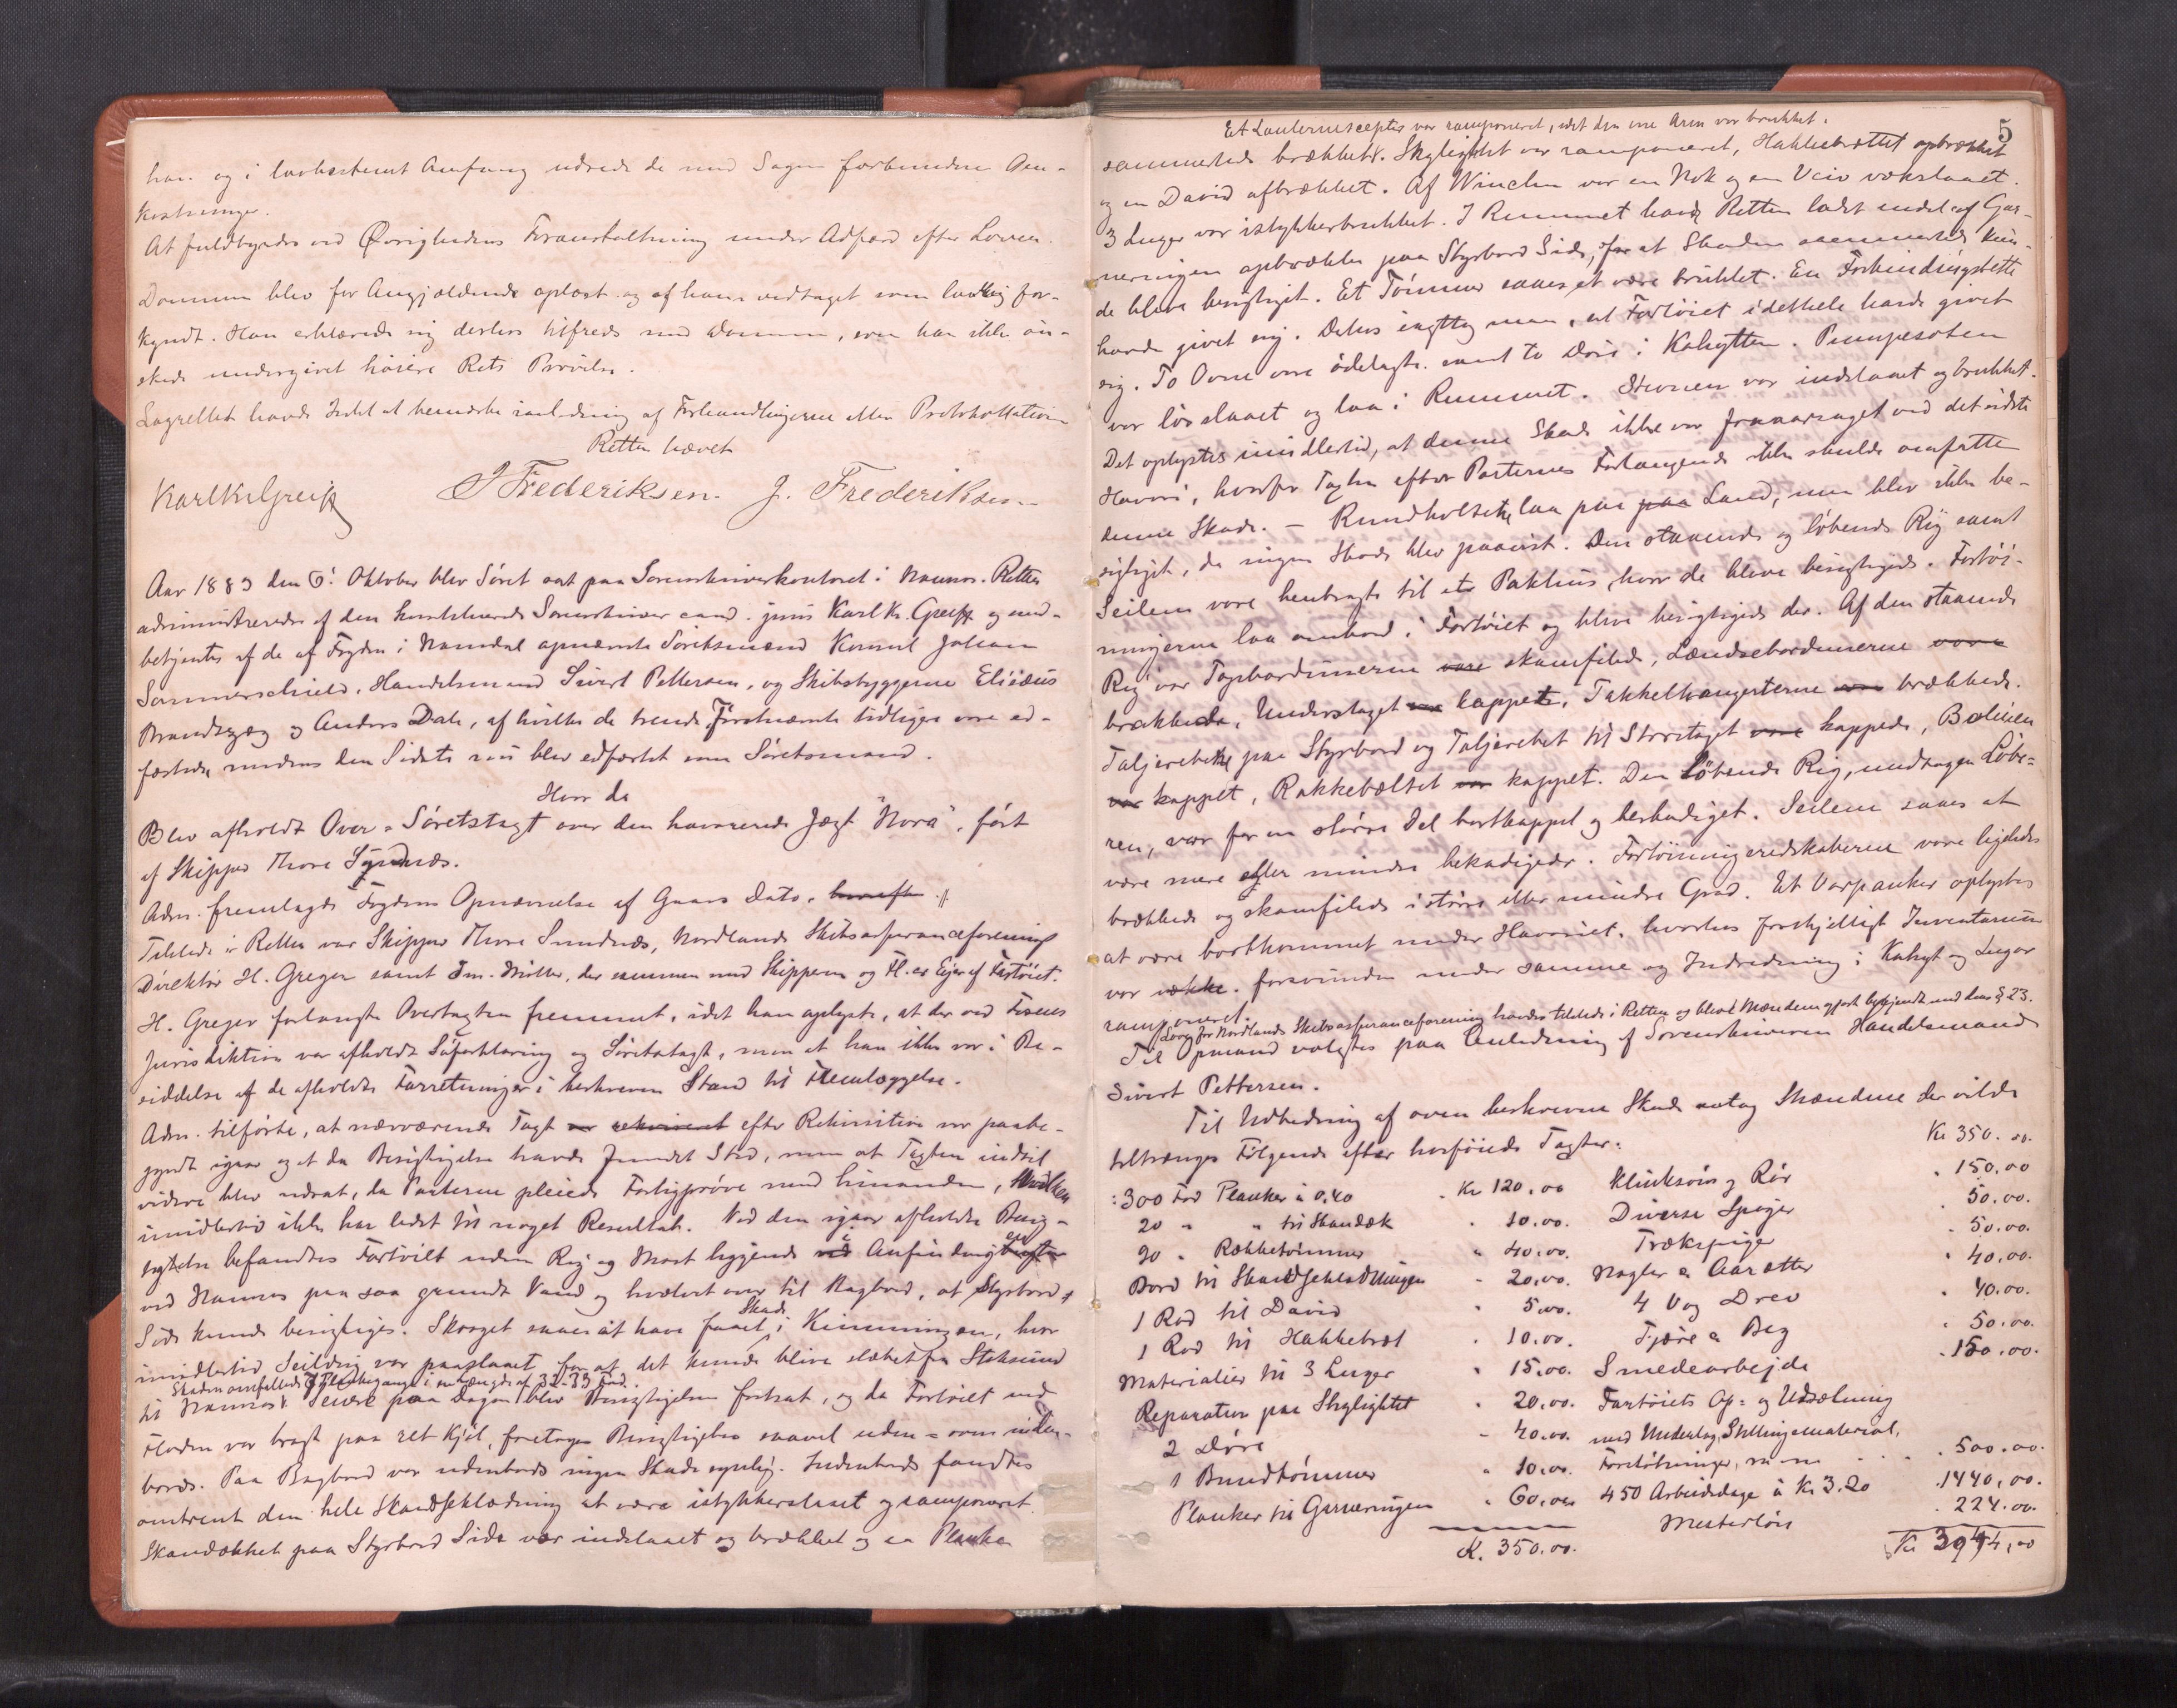 han og i lovbestemt Omfang udrede de med Sagen forbundne Om-
kostninger.
At fuldbyrdes ved Øvrighedens Foranstaltning under Adfærd efter Loven.
Dommen blev for Angjældende oplæst og af ham vedtaget som lovlig for-
kyndt. Han erklærede sig derhos tilfreds med Dommen, som han ikke øn-
skede undergivet høiere Rets Prøvelse.
Lagrettet havde Intet at bemærke i anledning af Forhandlingerne eller Protokollationen
Retten hævet
Karl K Greiff J Frederiksen. J. Frederiksen.
Aar 1883 den 6. Oktober blev Søret sat paa Sorenskriverkontoret i Namsos. Retten
administreredes af den konstituerede Sorenskriver cand. juris Karl K. Greiff og med-
betjentes af de af Fogden i Namdal opnævnte Søretsmænd Konsul Johan
Sommerschield, Handelsmand Sivert Pettersen, og Skibsbyggerne Elisæus
Brandtzæg og Anders Dahl, af hvilke de trende Førstnævnte tidligere vare ed-
fæstede, medens den Sidste nu blev edfæstet som Søretsmand.
Hvor da
Blev afholdt Over-Søretstagt over den havarerede Jægt "Nora", ført
af Skipper Thore Sundnæs.
Adm. fremlagde Fogdens Opnævnelse af Gaars Dato.
Tilstede i Retten var Skipper Thore Sundnæs, Nordlands Skibsassuranceforenings
Direktør H. Greger samt Im. Müller, der sammen med Skipperen og Fl. er Ejer af Fartøiet.
H. Greger forlangte Overtagten fremmet, idet han oplyste, at der ved Fosens
Jurisdiktion var afholdt Søforklaring og Søretstagt, men at han ikke var i Be-
siddelse af de afholdte Forretninger i beskreven Stand til Fremlæggelse.
Adm. tilførte, at nærværende Tagt var rekvireret efter Rekvisition var paabe-
gyndt igaar og at da Besigtigelse havde fundet Sted, men at Tagten indtil
videre blev udsat, da Parterne pleiede Forligsprøve med hinanden, hvilken
imidlertid ikke har ledet til noget Resultat. Ved den igaar afholdte Besig-
tigelse befandtes Fartøiet uden Rig og Mast liggende
ved Namsos paa saa grundt Vand og hvælvet over til Bagbord, at Styrbords
Side kunde besigtiges. Skroget saaes at have faaet Skade i Kimmingen, hvor
imidlertid Seildug var paaslaaet for at det kunde blive slæbet fra Stoksund
Skaden omfattede 3 Plankegange i en længde af 32-33 Fod.
til Namsos. Senere paa Dagen blev Besigtigelsen fortsat, og da Fartøiet med
Floden var bragt paa ret Kjøl, foretoges Besigtigelse saavel uden- som inden-
bords. Paa Bagbord var udenbords ingen Skade synlig. Indenbords fandtes
omtrent den hele Skandseklædning at være istykkerslaaet og ramponeret.
Skandækket paa Styrbord Side var indslaaet og brækket og en Planke
5
Et Lanternesceptre var ramponeret, idet den ene Arm var brukket.
sammesteds brækket. Skylightet var ramponeret, Hakkebrættet opbrækket
og en David afbrækket. Af Winchen var en Nok og en Veiv vækslaaet.
3 Luger var istykkerbrukket. I Rummet havde Retten ladet endel af Gar-
neringen opbrække paa Styrbord Side, for at Skaden sammesteds kun-
de blive besigtiget. Et Tømmer saaes at være brukket. En Forbindingsbitte
havde givet sig. Derhos iagttog man, at Fartøiet idethele havde givet
sig. To Ovne vare ødelagte samt to Døre i Kahytten. Pumpesoten
var løs slaaet og laa i Rummet. Stevnen var indslaaet og brukket.
Det oplystes imidlertid, at denne Skade ikke var foraarsaget ved det sidste
Havari, hvorfor Tagten efter Parternes Forlangende ikke skulde omfatte
denne Skade. – Rundholtet laa paa paa Land, men blev ikke be-
sigtiget, da ingen Skade blev paavist. Den staaende og løbende Rig samt
Seilene vare henbragte til et Pakhus, hvor de bleve besigtigede. Fortøi-
ningerne laa ombord i Fartøiet og bleve besigtigede der. Af den staaende
Rig var Topbarduunerne vare skamfilede, Lændsebarduunerne vare
brækkede, Understaget var kappet, Takkelhangerterne vare brækkede.
Taljerebet paa Styrbord og Taljerebet til Storstaget vare kappede, Bolinen
var kappet, Rakkebæltet var kappet. Den løbende Rig, undtagen Løbe-
ren, var for en større Del bortkappet og beskadiget. Seilene saaes at
være mere eller mindre beskadigede. Fortøiningsredskaberne vare ligeledes
brækkede og skamfilede i større eller mindre Grad. Et Varpanker oplystes
at være bortkommet under Havariet, hvorhos forskjelligt Inventarium
var vække. forsvunden under samme og Indredning i Kahyt og Lugar
ramponeret.
Love for Nordlands Skibsassuranceforening havdes tilstede i Retten og bleve Mændene gjort bekjendt med dens § 23.
Til Opmand valgtes paa Anledning af Sorenskriveren Handelsmand
Sivert Pettersen.
Til Udbedring af oven beskrevne Skade antog Mændene der vilde
tiltrænges Følgende efter hosføiede Tagter:
: 300 Fod Planker à 0,40 Kr 120,00
20 " " til Skandæk " 10.00.
90 " Rækketømmer " 40,00.
Bord til Skandseklædningen " 20,00.
1 Rod til David " 5,00.
1 Rod til Hakkebræt " 10,00.
Materialier til 3 Luger " 15,00.
Reparation paa Skylightet " 20,00.
2 Døre " 40,00.
1 Bundtømmer " 10,00.
Planker til Garneringen " 60,00
Kr. 350.00.
Kr 350.00.
Klinksøm og Rør " 150,00
Diverse Spiger " 50,00.
Trækspiger " 50,00.
Nagler " 40,00.
4 Vog Drev " 40,00.
Tjære & Beg " 50,00.
Smedearbejde " 150,00.
Fartøiets Op- og Udsætning
med Underlag, Stillingsmaterial,
Forstøtninger, m m " 500.00.
450 Arbeidsdage à Kr 3.20 " 1440,00.
Mesterløn " 224.00.
Kr 3044,00